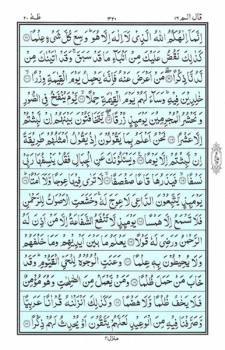 قال الم ١٦
٣٢٠
طٰهٰ ٢٠
اِنَّمَاۤ اِلٰهُكُمُ اللّٰهُ الَّذِیْ لَاۤ اِلٰهَ اِلَّا هُوَ ؕ وَسِعَ كُلَّ شَیْءٍ عِلْمًا
كَذٰلِكَ نَقُصُّ عَلَیْكَ مِنْ اَنْۢبَآءِ مَا قَدْ سَبَقَ ۚ وَقَدْ اٰتَیْنٰكَ مِنْ
لَّدُنَّا ذِكْرًا مَنْ اَعْرَضَ عَنْهُ فَاِنَّهٗ یَحْمِلُ یَوْمَ الْقِیٰمَةِ وِزْرًا
خٰلِدِیْنَ فِیْهِ ؕ وَسَآءَ لَهُمْ یَوْمَ الْقِیٰمَةِ حِمْلًا یَّوْمَ یُنْفَخُ فِی الصُّوْرِ
وَنَحْشُرُ الْمُجْرِمِیْنَ یَوْمَئِذٍ زُرْقًا یَّتَخَافَتُوْنَ بَیْنَهُمْ اِنْ لَّبِثْتُمْ
اِلَّا عَشْرًا نَحْنُ اَعْلَمُ بِمَا یَقُوْلُوْنَ اِذْ یَقُوْلُ اَمْثَلُهُمْ طَرِیْقَةً
اِنْ لَّبِثْتُمْ اِلَّا یَوْمًا وَیَسْـَٔلُوْنَكَ عَنِ الْجِبَالِ فَقُلْ یَنْسِفُهَا رَبِّیْ
نَسْفًا فَیَذَرُهَا قَاعًا صَفْصَفًا لَّا تَرٰی فِیْهَا عِوَجًا وَّلَاۤ اَمْتًا
یَوْمَئِذٍ یَّتَّبِعُوْنَ الدَّاعِیَ لَا عِوَجَ لَهٗ ۚ وَخَشَعَتِ الْاَصْوَاتُ لِلرَّحْمٰنِ
فَلَا تَسْمَعُ اِلَّا هَمْسًا یَوْمَئِذٍ لَّا تَنْفَعُ الشَّفَاعَةُ اِلَّا مَنْ اَذِنَ لَهُ
الرَّحْمٰنُ وَرَضِیَ لَهٗ قَوْلًا یَعْلَمُ مَا بَیْنَ اَیْدِیْهِمْ وَمَا خَلْفَهُمْ
وَلَا یُحِیْطُوْنَ بِهٖ عِلْمًا وَعَنَتِ الْوُجُوْهُ لِلْحَیِّ الْقَیُّوْمِ ؕ وَقَدْ
خَابَ مَنْ حَمَلَ ظُلْمًا وَمَنْ یَّعْمَلْ مِنَ الصّٰلِحٰتِ وَهُوَ مُؤْمِنٌ
فَلَا یَخٰفُ ظُلْمًا وَّلَا هَضْمًا وَكَذٰلِكَ اَنْزَلْنٰهُ قُرْاٰنًا عَرَبِیًّا
وَّصَرَّفْنَا فِیْهِ مِنَ الْوَعِیْدِ لَعَلَّهُمْ یَتَّقُوْنَ اَوْ یُحْدِثُ لَهُمْ ذِكْرًا